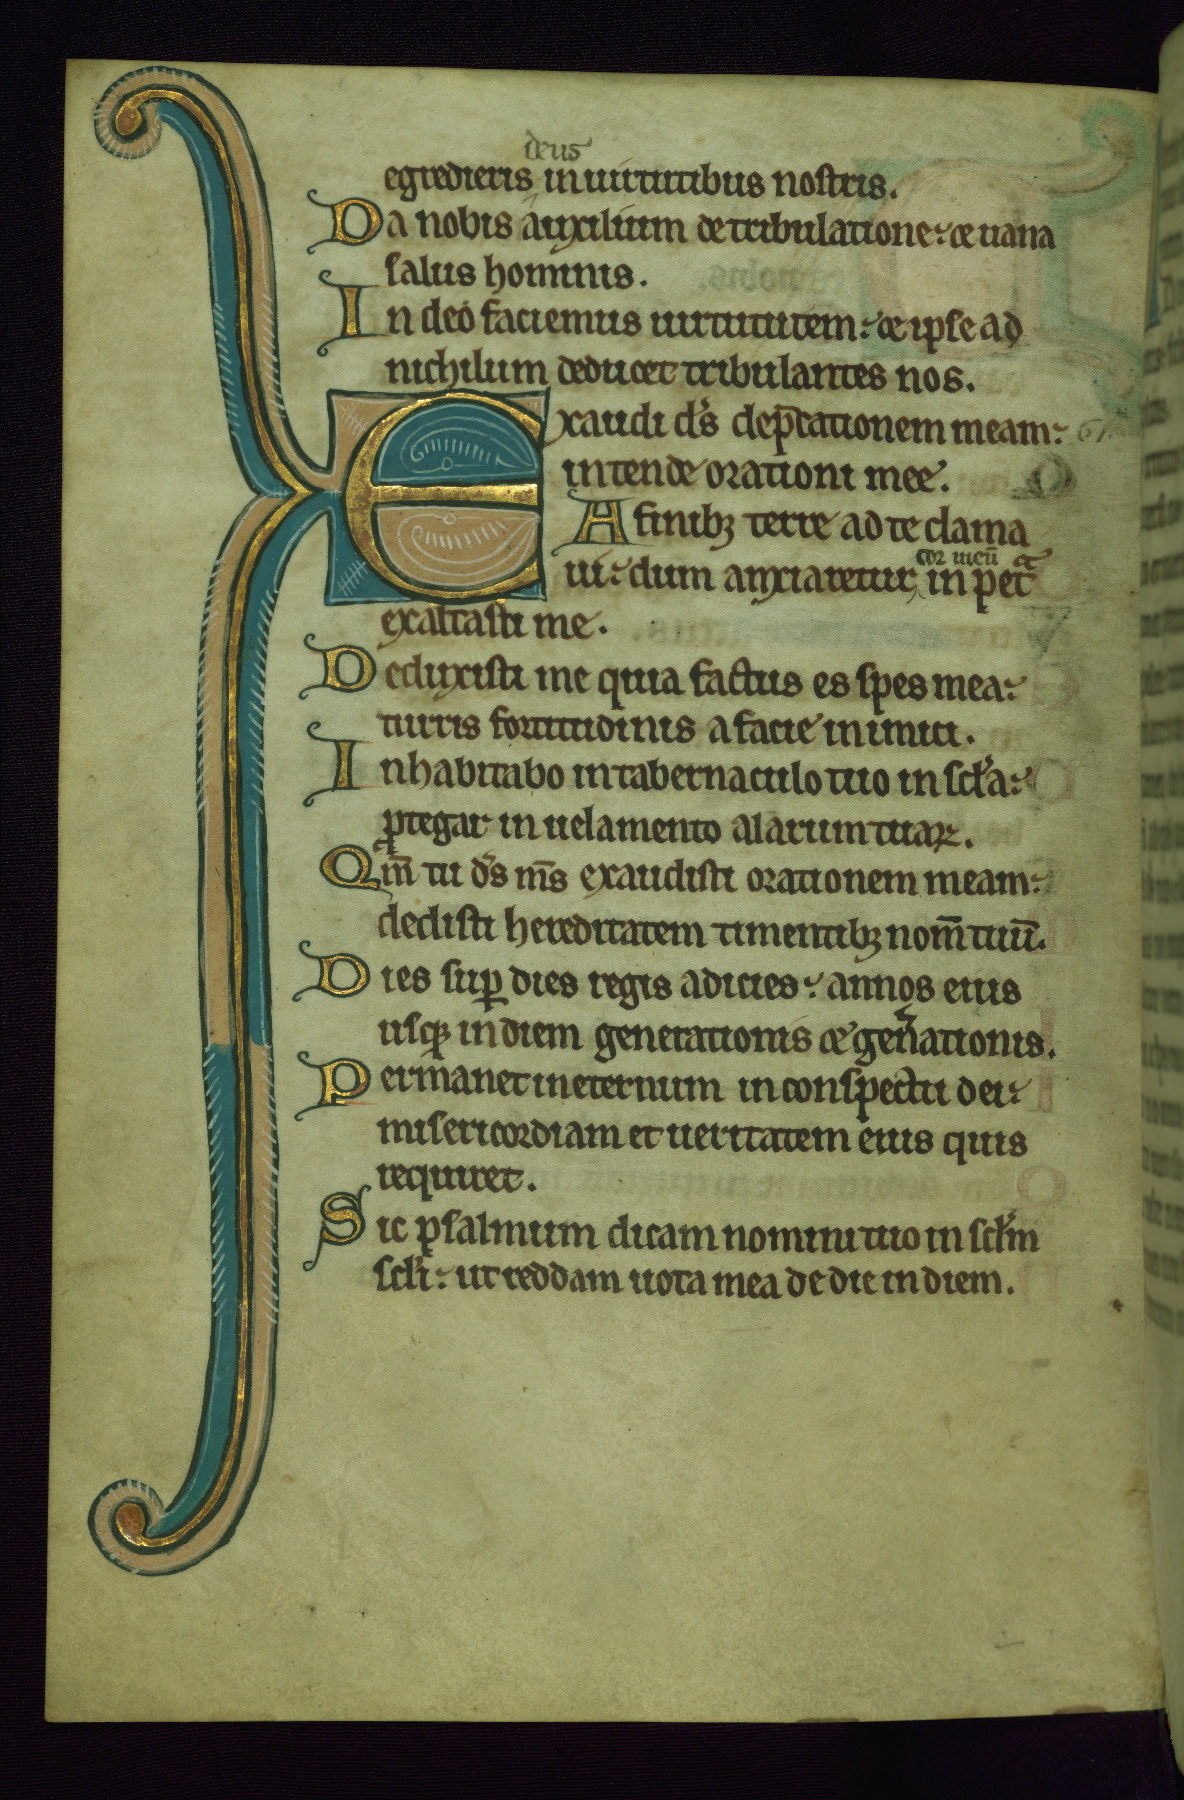 deus
egredieris in uirtutibus nostris.
Da nobis auxilium de tribulatione: & uana
salus hominis.
In deo faciemus uirtututem: & ipse ad
nichilum deducet tribulantes nos.
Exaudi d̄s dep̄cationem meam: 61.
intende orationi mee.
A finibꝫ terre ad te clama
cor meū
ui: dum anxiaretur in petͣ
exaltasti me.
Deduxisti me quia factus es spes mea:
turris fortitudinis a facie inimici.
Inhabitabo in tabernaculo tuo in sc̄la:
ꝓtegar in uelamento alarum tuaꝝ.
Qm̄ tu d̄s m̄s exaudisti orationem meam:
dedisti hereditatem timentibꝫ nom̄ tuū.
Dies suꝑ dies regis adicies: annos eius
usqꝫ in diem generationis & gen̄ationis.
Permanet in eternum in conspectu dei:
misericordiam et ueritatem eius quis
requiret.
Sic psalmum dicam nomini tuo in sc̄lm
sc̄li: ut reddam uota mea de die in diem.